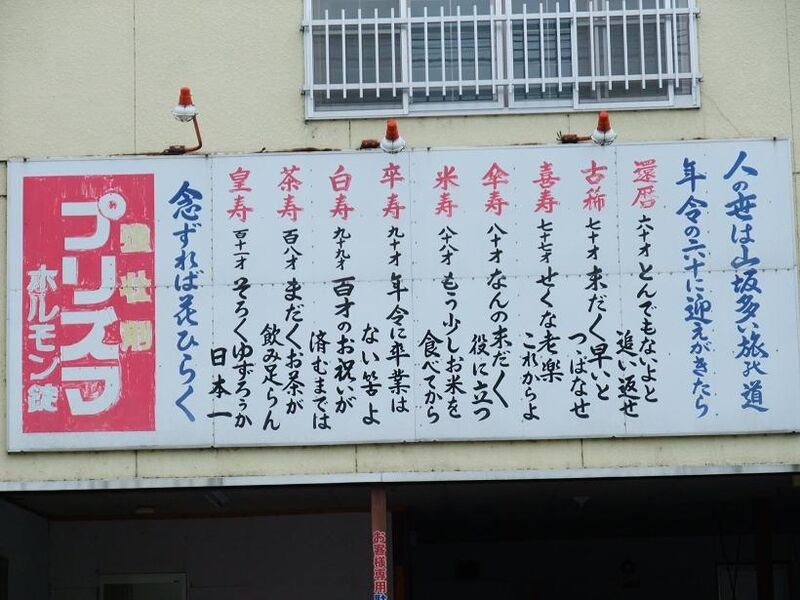 人の世は山坂多い旅の道
年令の六十に迎えがきたら
還暦 六十才 とんでもないよと
追い返せ
古稀 七十才 未だ〱早いと
つっぱなせ
喜寿 七十七才 せくな老楽
これからよ
傘寿 八十才 なんの未だ〱
役に立つ
米寿 八十八才 もう少しお米を
食べてから
卒寿 九十才 年令に卒業は
ない筈よ
白寿 九十九才 百才のお祝いが
済むまでは
茶寿 百八才 まだ〱お茶が
飲み足らん
皇寿 百十一才 そろ〱ゆずろうか
日本一
念ずれば花ひらく
強壮剤
プリズマ
ホルモン錠
お客様専用